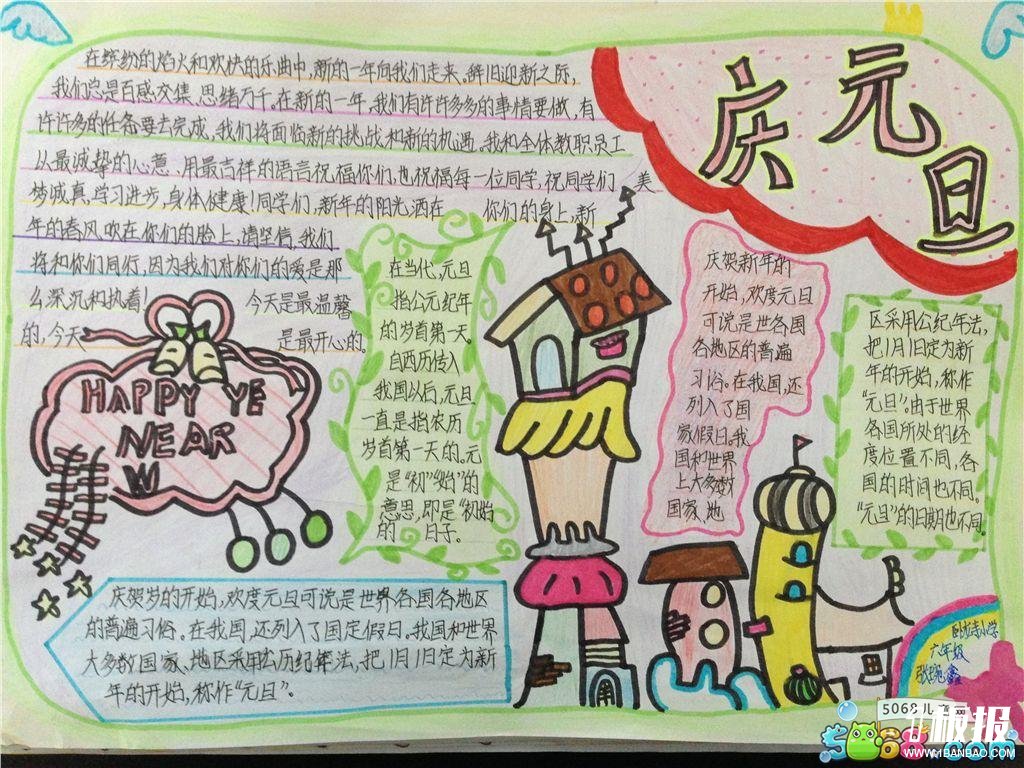 庆元旦
在缤纷的焰火和欢快的乐曲中,新的一年向我们走来。辞旧迎新之际,
我们总是百感交集,思绪万千。在新的一年,我们有许许多多的事情要做,有
许许多的任务要去完成,我们将面临新的挑战和新的机遇。我和全体教职员工
以最诚挚的心意、用最吉祥的语言祝福你们,也祝福每一位同学,祝同学们 美
梦诚真,学习进步,身体健康!同学们,新年的阳光洒在 你们的身上,新
年的春风吹在你们的脸上,请坚信,我们
将和你们同行,因为我们对你们的爱是那
么深沉和执着! 今天是最温馨
的,今天 是最开心的。
HAPPY YE
NEAR
W
在当代,元旦
指公元纪年
的岁首第一天。
自西历传入
我国以后,元旦
一直是指农历
岁首第一天的。元
是“初”“始”的
意思,即是“初始
的 日子。
庆贺新年的
开始,欢度元旦
可说是世各国
各地区的普遍
习俗。在我国,还
列入了国
家假日。我
国和世界
上大多数
国家、地
区采用公纪年法,
把1月1日定为新
年的开始,称作
“元旦”。由于世界
各国所处的经
度位置不同,各
国的时间也不同。
“元旦”的日期也不同
庆贺岁的开始,欢度元旦可说是世界各国各地区
的普遍习俗。在我国,还列入了国定假日。我国和世界
大多数国家、地区采用公历纪年法,把1月1日定为新
年的开始,称作“元旦”。
卧龙寺小学
六年级
5068儿童网
板报
WWW.1BANBAO.COM